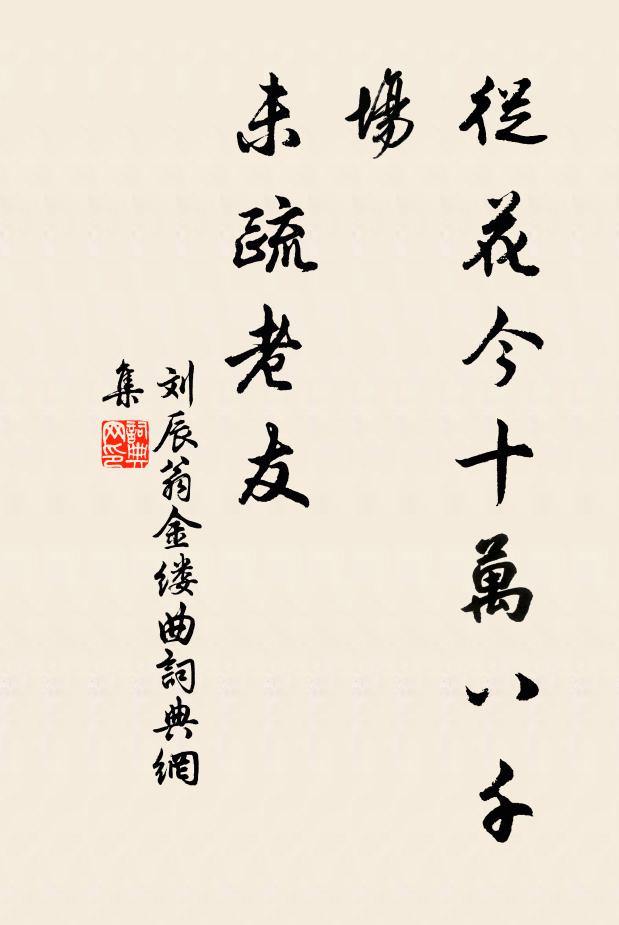 從花今十萬八千
場
未疏老友
刘辰翁金缕曲詞典網
集
詞典網印